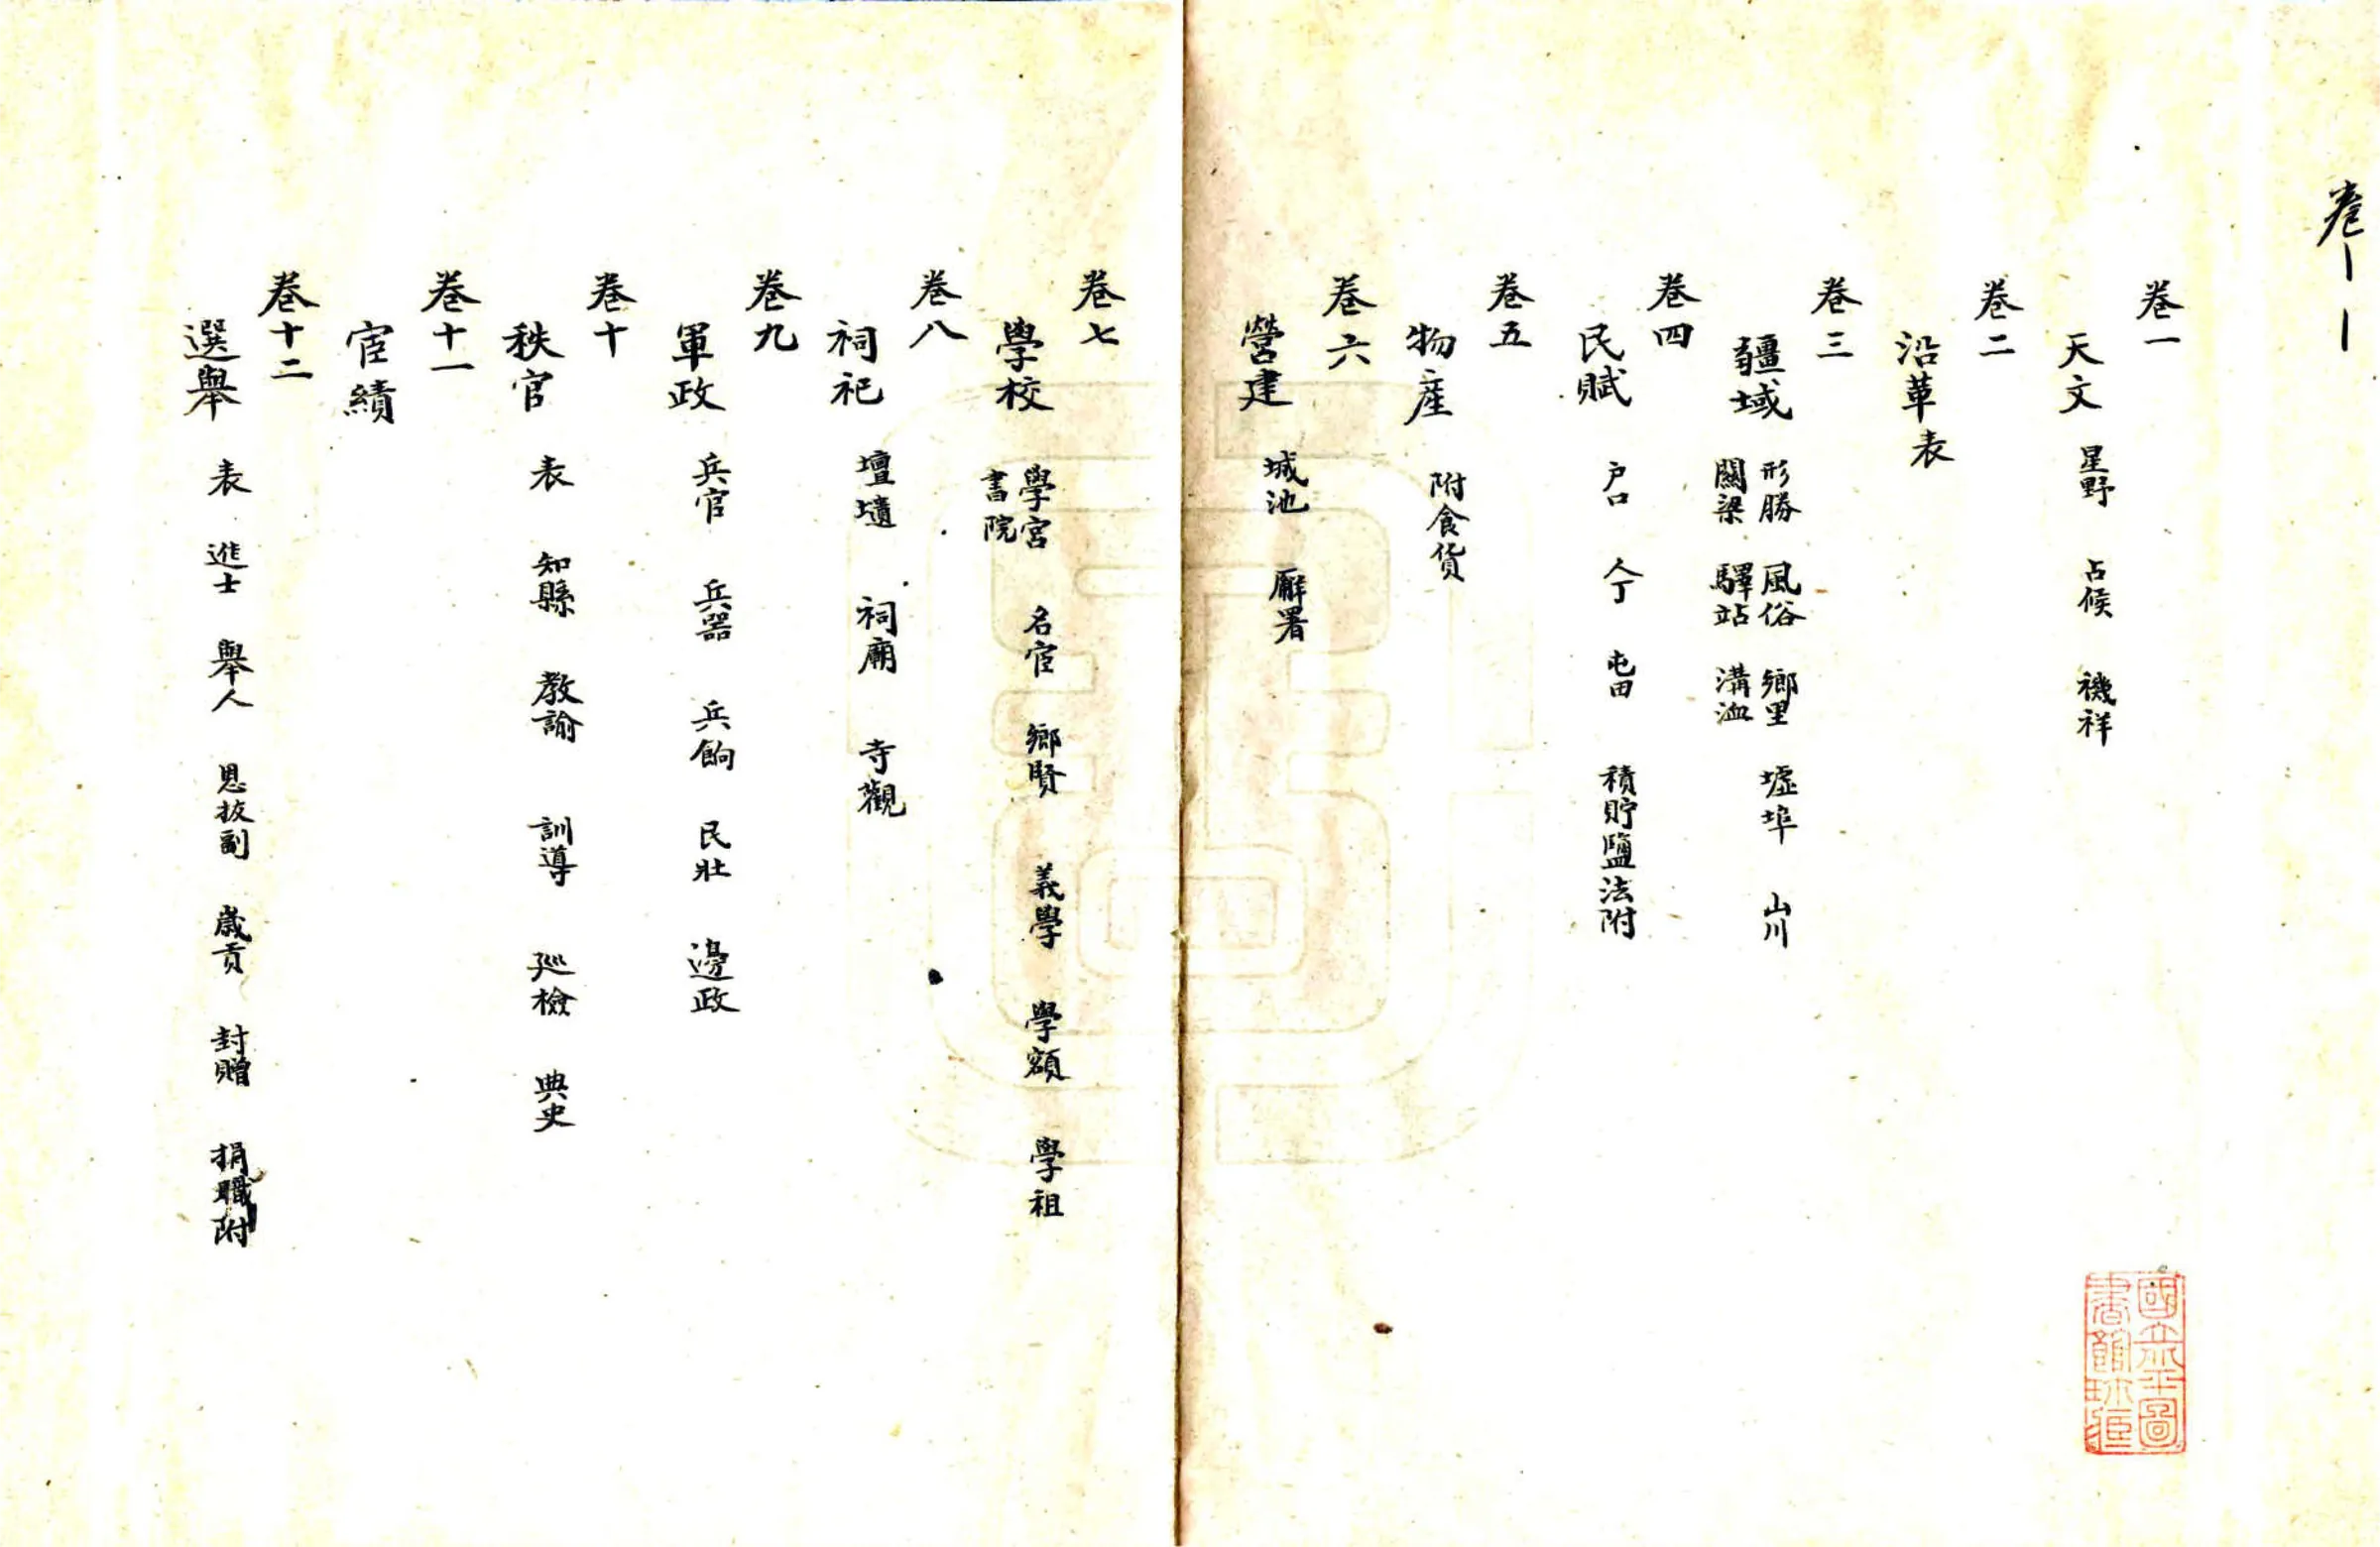 卷一一
卷一
天文 星野 占候 禨祥
卷二
沿革表
卷三
疆域 形勝 風俗 鄉里 墟埠 山川
關梁 驛站 溝洫
卷四
民賦 户口 人丁 屯田 積貯鹽法附
卷五
物産 附食貨
卷六
營建 城池 廨署
卷七
學校 學宮 名宦 鄉賢 義學 學額 學租
書院
卷八
祠祀 壇壝 祠廟 寺觀
卷九
軍政 兵官 兵器 兵餉 民壯 邊政
卷十
秩官 表 知縣 教諭 訓導 廵檢 典史
卷十一
宦績
卷十二
選舉 表 進士 舉人 恩拔副 歲貢 封贈 捐職附
國立北平圖
書館珍藏